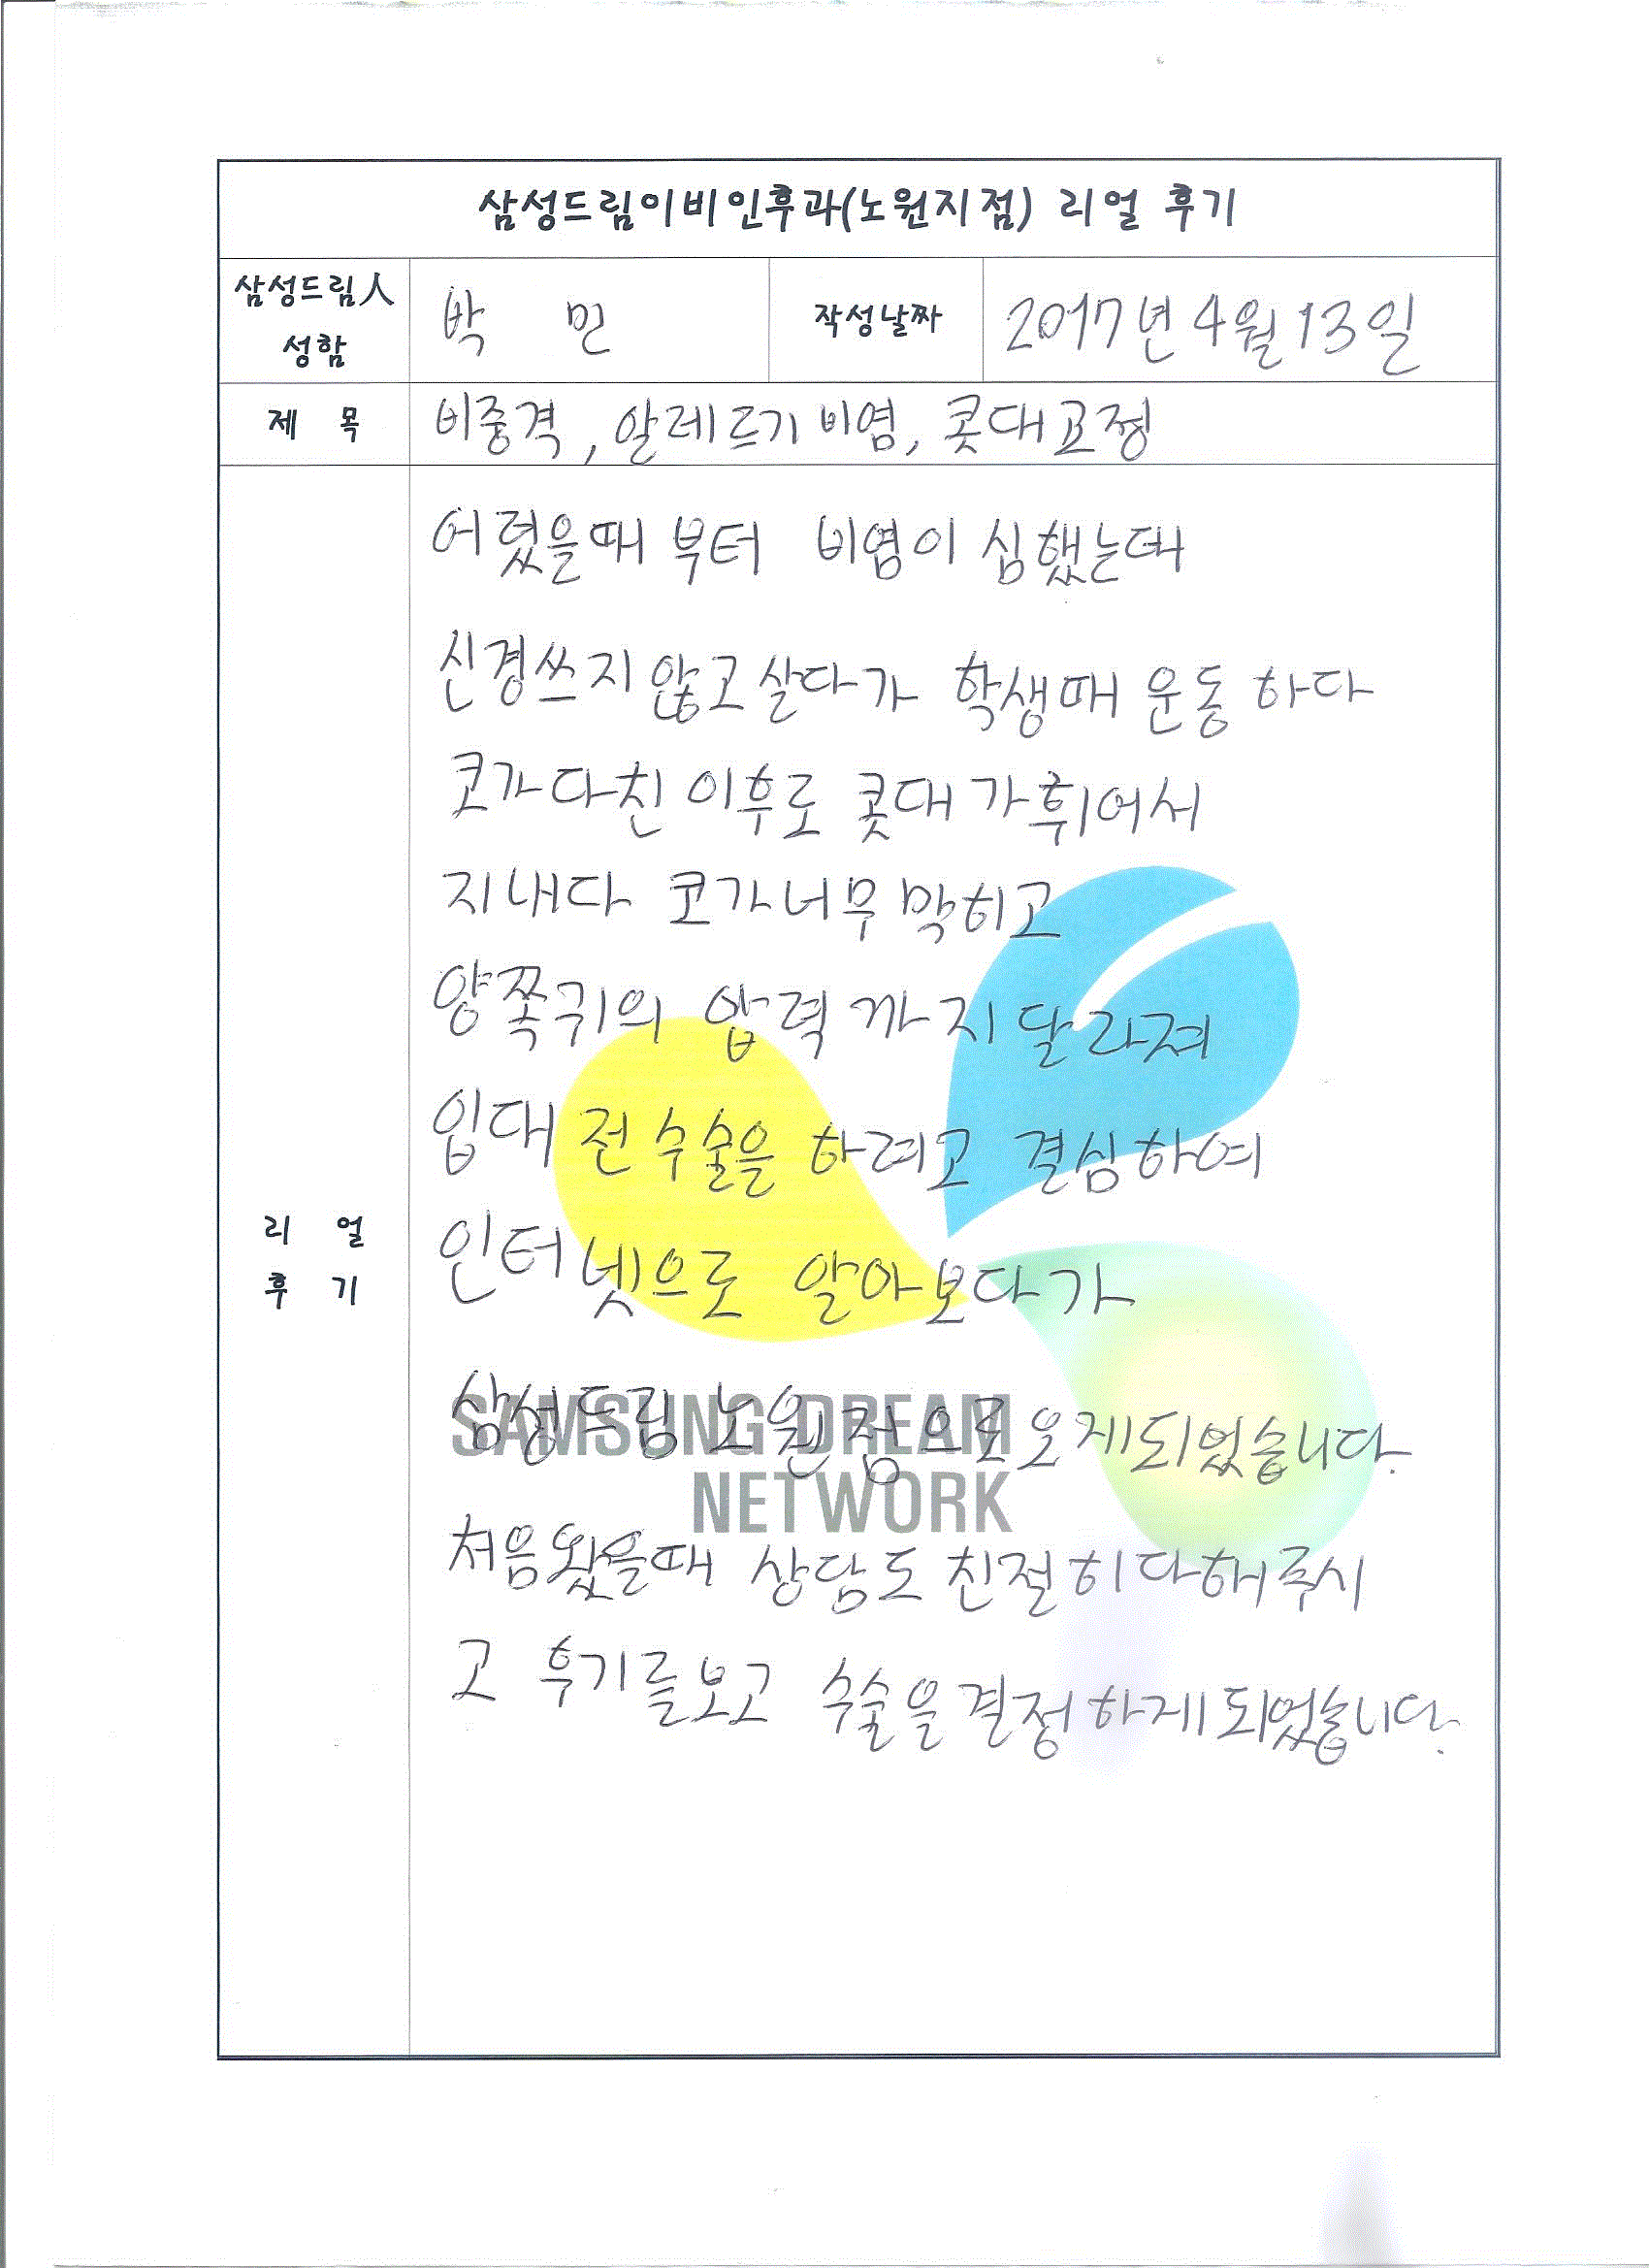 삼성드림이비인후과(노원지점) 리얼 후기
삼성드림人 성함 박 민 작성날짜 2017년 4월 13일
제 목 비중격, 알레르기 비염, 콧대교정
리 얼 후 기
어렸을때 부터 비염이 심했는데
신경쓰지 않고 살다가 학생때 운동 하다
코가 다친 이후로 콧대가 휘어서
지내다 코가 너무 막히고
양쪽귀의 압력 까지 달라져
입대 전 수술을 하려고 결심하여
인터넷으로 알아보다가
삼성드림 노원점으로 오게되었습니다.
처음왔을때 상담도 친절히 다해주시
고 후기를보고 수술을 결정하게 되었습니다.
SAMSUNG DREAM
NETWORK